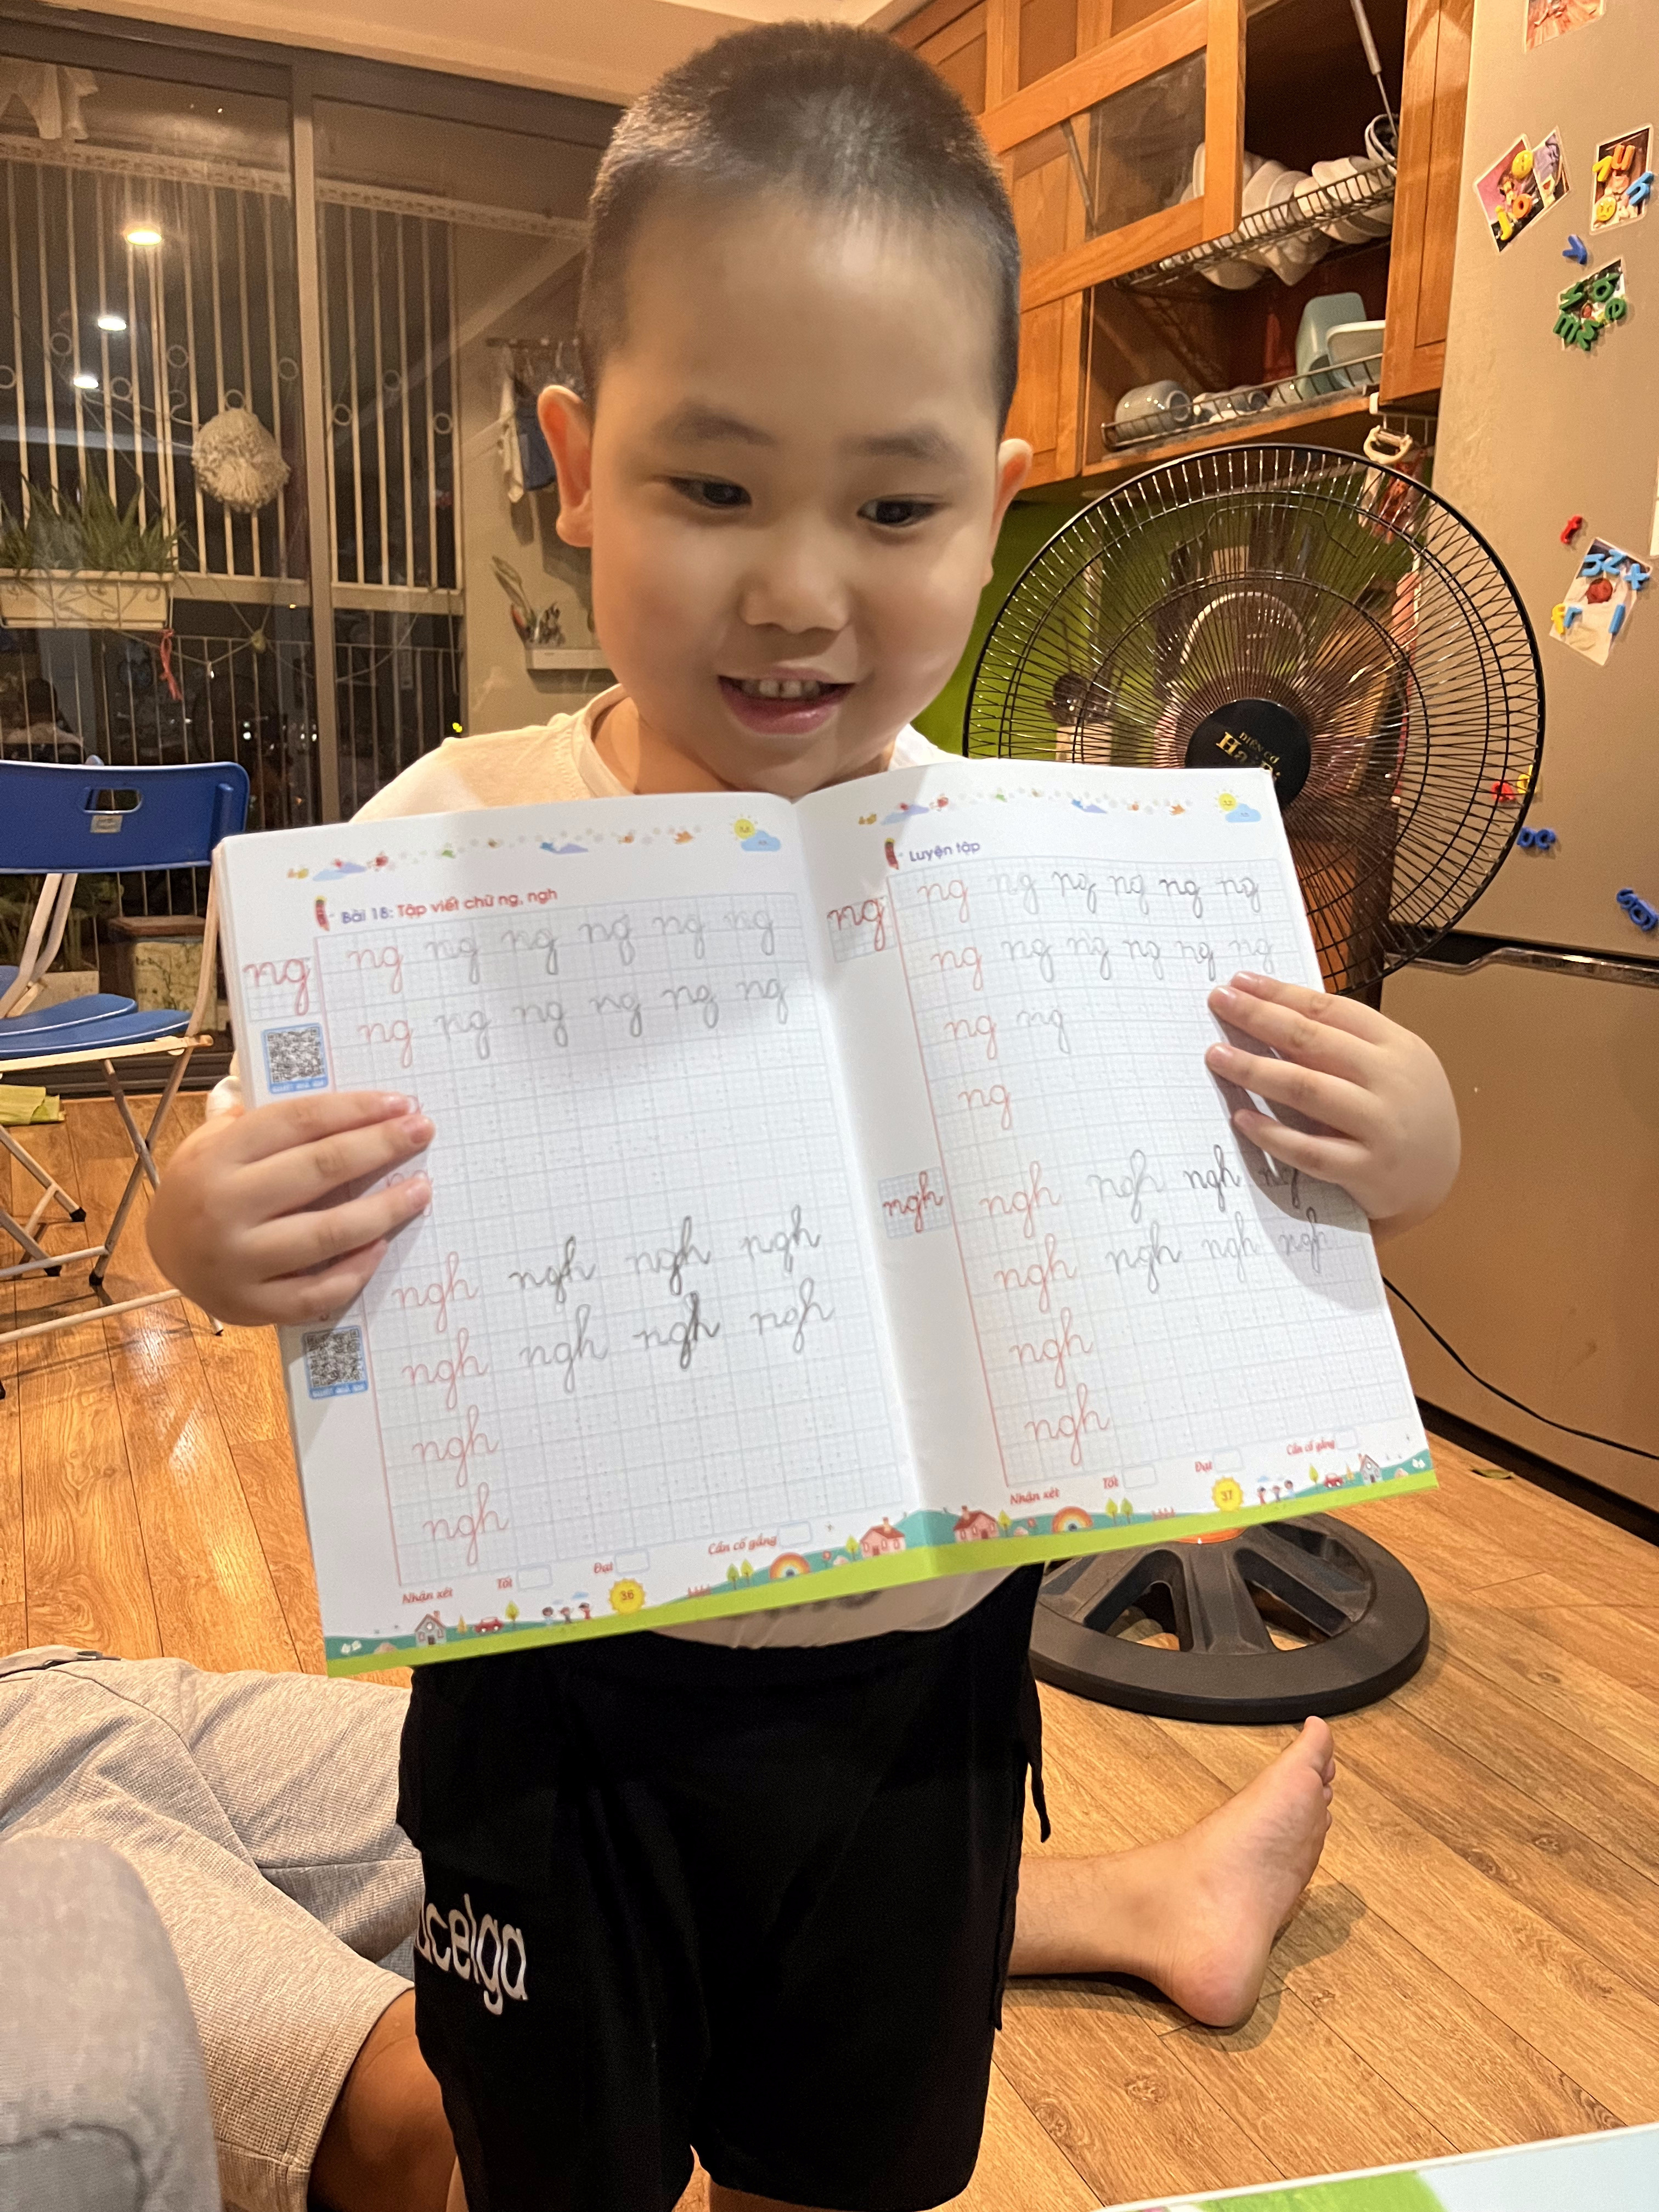 Bài 18: Tập viết chữ ng, ngh
ng
ng ng ng ng ng ng
ng ng ng ng ng ng
ngh ngh ngh ngh
ngh ngh ngh ngh
ngh
ngh
Nhận xét Tốt Đạt Cần cố gắng
36
Luyện tập
ng
ng ng ng ng ng ng
ng ng ng ng ng ng
ng ng
ng
ngh
ngh ngh ngh
ngh ngh ngh ngh
ngh
ngh
Nhận xét Tốt Đạt Cần cố gắng
37
ĐIỆN CƠ